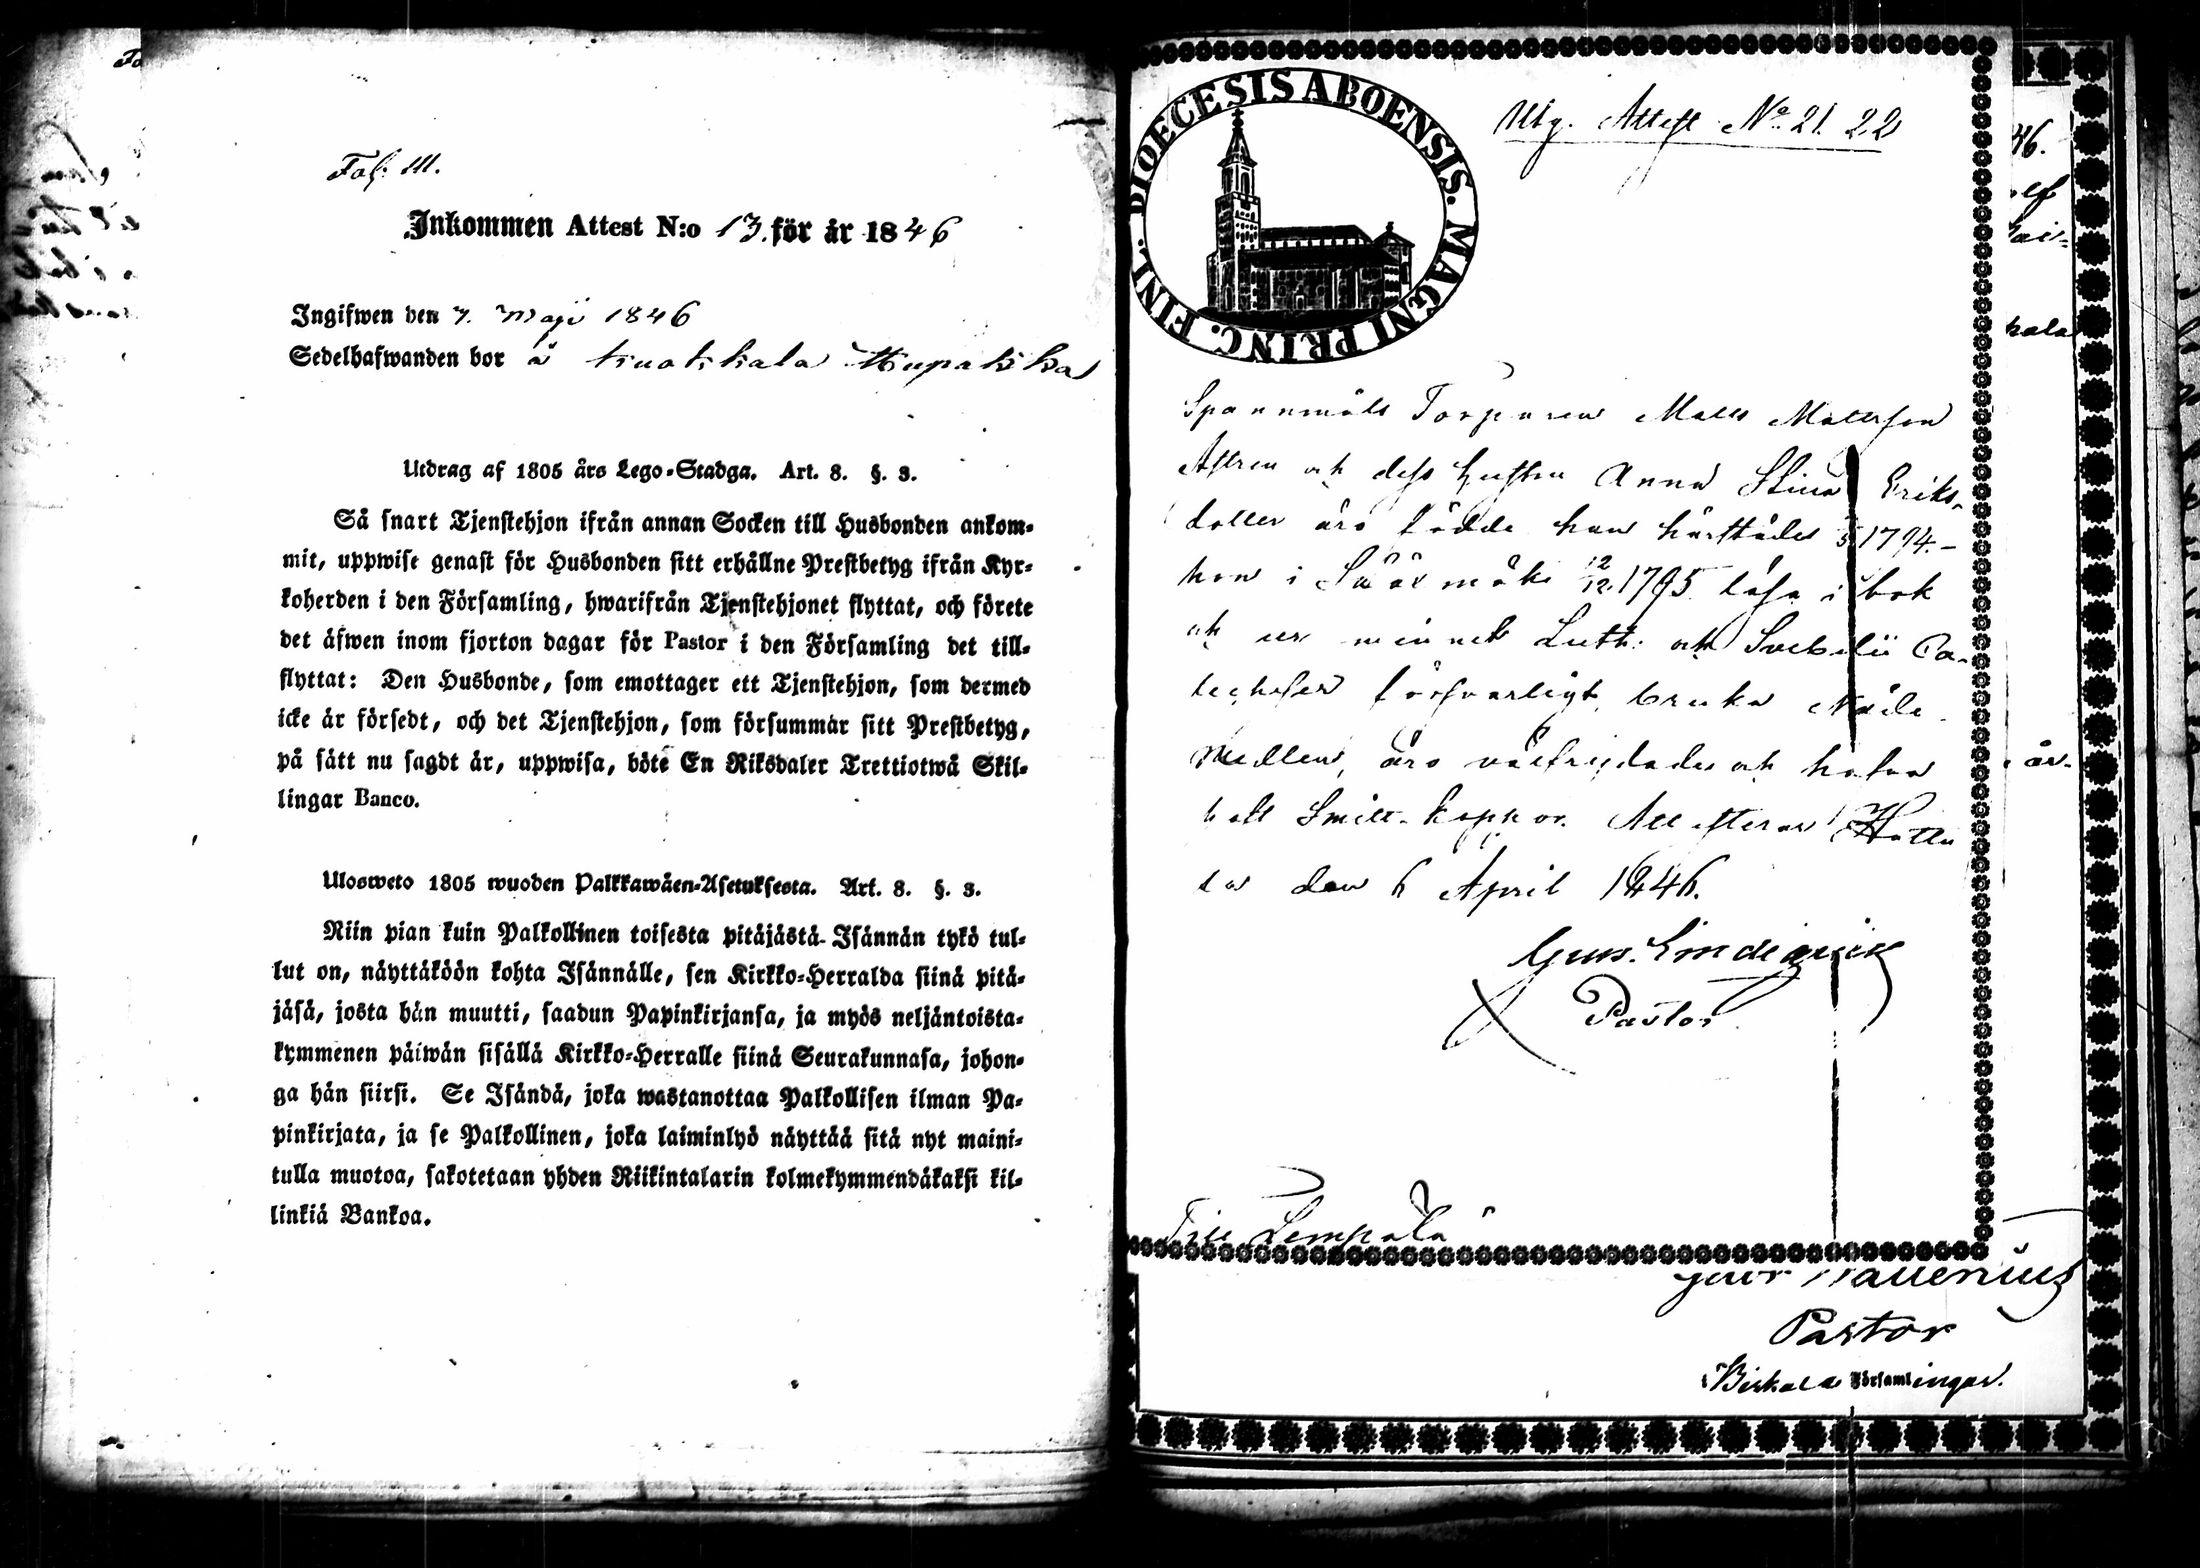 Fol: 111.
Inkommen Attest N:o 13. för år 1846
Ingifwen den 7. Maji 1846
Sedelhafwanden bor å Kuokkala
Utdrag af 1805 års Lego-Stadga. Art. 8. §. 3.
Så snart Tjenstehjon ifrån annan Socken till Husbonden ankom-
mit, uppwise genast för Husbonden sitt erhållne Prestbetyg ifrån Kyr-
koherden i den Församling, hwarifrån Tjenstehjonet flyttat, och förete
det äfwen inom fjorton dagar för Pastor i den Församling det till-
flyttat: Den Husbonde, som emottager ett Tjenstehjon, som dermed
icke är försedt, och det Tjenstehjon, som försummar sitt Prestbetyg,
på sätt nu sagdt är, uppwisa, böte En Riksdaler Trettiotwå Skil-
lingar Banco.
Ulosweto 1805 wuoden Palkkawäen-Asetuksesta. Art. 8. §. 3.
Niin pian kuin Palkollinen toisesta pitäjästä Isännän tykö tul-
lut on, näyttäköön kohta Isännälle, sen Kirkko-Herralda siinä pitä-
jäsä, josta hän muutti, saadun Papinkirjansa, ja myös neljäntoista-
kymmenen päiwän sisällä Kirkko-Herralle siinä Seurakunnasa, johon-
ga hän siirsi. Se Isändä, joka wastanottaa Palkollisen ilman Pa-
pinkirjata, ja se Palkollinen, joka laiminlyö näyttää sitä nyt maini-
tulla muotoa, sakotetaan yhden Riikintalarin kolmekymmendäkaksi kil-
linkiä Bankoa.
DIOECESIS ABOENSIS. MAGNI PRINC. FINL.
Utg. Attest No 21. 22
Spannmåls Torparen Matts Mattsson
och dess hustru Anna Stina Eriks-
dotter äro födde han härstädes 1794.-
hon i Sääxmäki 12/12 1795 läsa i bok
och ur minnet Luth: och Svebelii Ca-
techeser försvarligt, bruka Nåde-
medlen, äro välfrejdade och hafva
haft Smitt-koppor. Attesterar Hattu
la den 6 April 1846.
Gust.
Pastor
Till Lempälä
Wallenius
Pastor
i Birkala Församlingar.
46.
kala
är-